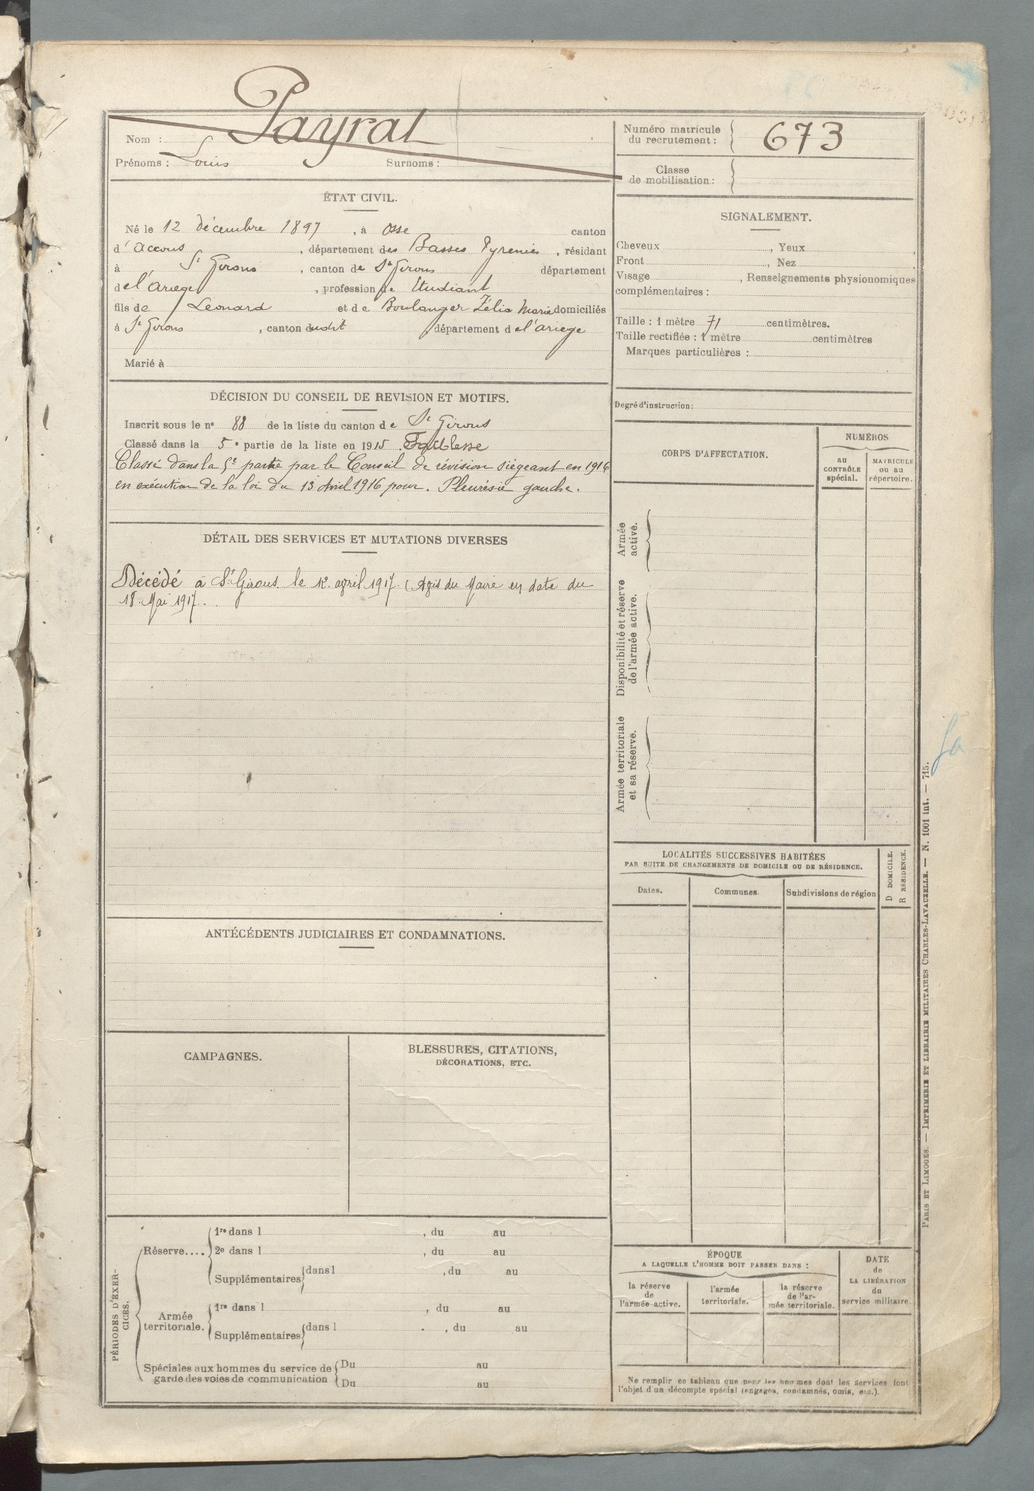 Payrat
Nom :
Prénoms : Louis Surnoms :
Numéro matricule
du recrutement : 673
Classe
de mobilisation :
ÉTAT CIVIL.
Né le 12 décembre 1897, à Osse canton
d'Accous, département des Basses Pyrenées, résidant
à St Girons, canton de St Girons département
de l'Ariège, profession de Etudiant
fils de Leonard et de Boulanger Zélia Marie domiciliés
à St Girons, canton dudit département de l'ariege
Marié à
SIGNALEMENT.
Cheveux , Yeux
Front , Nez
Visage , Renseignements physionomiques
complémentaires :
Taille : 1 mètre 71 centimètres.
Taille rectifiée : 1 mètre centimètres
Marques particulières :
Degré d'instruction :
DÉCISION DU CONSEIL DE REVISION ET MOTIFS.
Inscrit sous le n° 88 de la liste du canton de St Girons
Classé dans la 5e partie de la liste en 1915 Faiblesse
Classé dans la 5e partie par le Conseil de révision siégeant en 1916
en exécution de la loi du 13 Avril 1916 pour. Pleurésie gauche.
DÉTAIL DES SERVICES ET MUTATIONS DIVERSES
Décédé à St Girons le 12 april 1917 (Avis du Maire en date du
18 Mai 1917.
CORPS D'AFFECTATION.
NUMÉROS
AU
CONTRÔLE
spécial.
MATRICULE
OU AU
répertoire.
Armée
active.
Disponibilité et réserve
de l'armée active.
Armée territoriale
et sa réserve.
LOCALITÉS SUCCESSIVES HABITÉES
PAR SUITE DE CHANGEMENTS DE DOMICILE OU DE RÉSIDENCE.
Dates.
Communes.
Subdivisions de région
D DOMICILE.
R RÉSIDENCE.
ANTÉCÉDENTS JUDICIAIRES ET CONDAMNATIONS.
CAMPAGNES.
BLESSURES, CITATIONS,
DÉCORATIONS, ETC.
PÉRIODES D'EXER-
CICES.
Réserve....
1re dans l , du au
2e dans l , du au
Supplémentaires dans l , du au
Armée
territoriale.
1re dans l , du au
Supplémentaires dans l , du au
Spéciales aux hommes du service de
garde des voies de communication
Du au
Du au
ÉPOQUE
A LAQUELLE L'HOMME DOIT PASSER DANS :
la réserve
de
l'armée active.
l'armée
territoriale.
la réserve
de l'ar-
mée territoriale.
DATE
de
LA LIBÉRATION
du
service militaire.
Ne remplir ce tableau que pour les hommes dont les services font
l'objet d'un décompte spécial (engagés, condamnés, omis, etc.).
PARIS ET LIMOGES. — IMPRIMERIE ET LIBRAIRIE MILITAIRES CHARLES-LAVAUZELLE. — N. 1001 int. — 715.